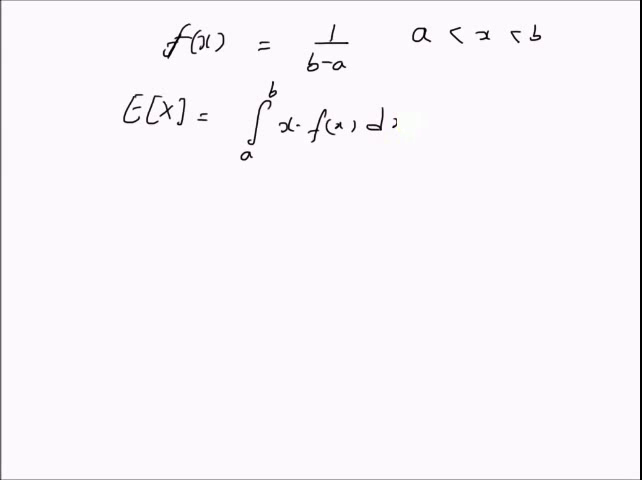 f(x) = 1/(b-a) a < x < b
E[X] = ∫_a^b x. f(x) dx